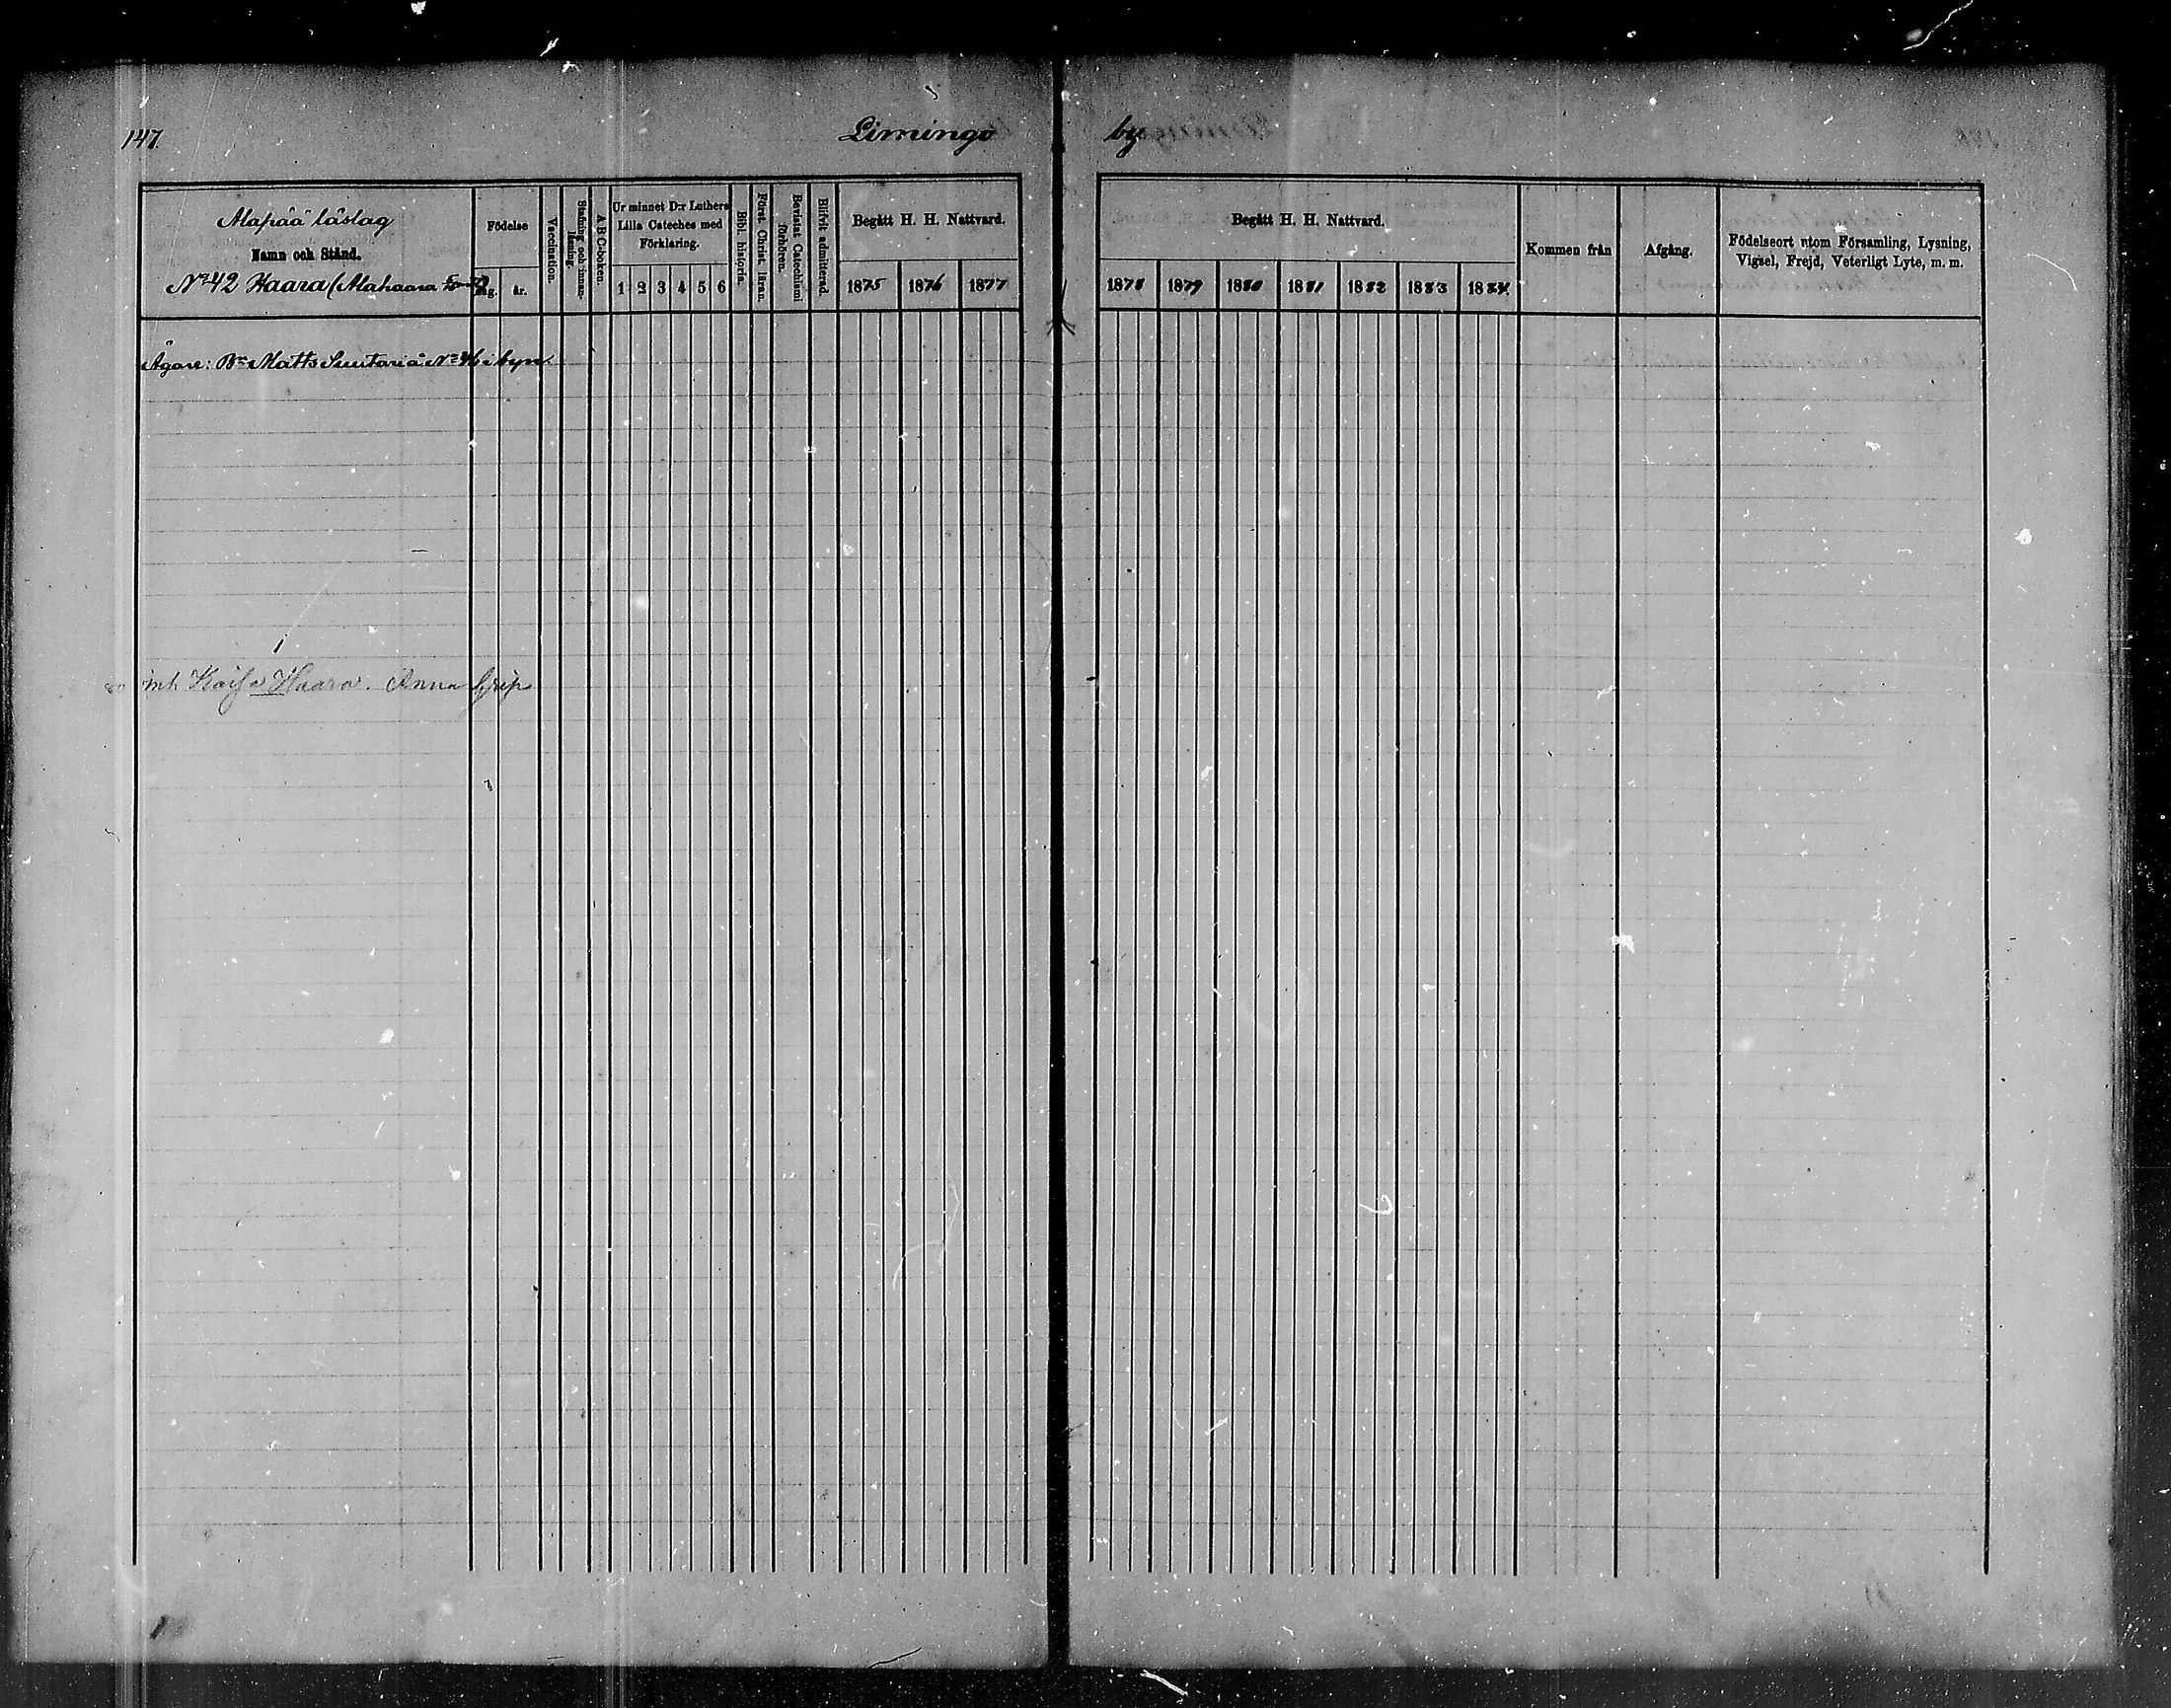 147.
Limingo by
Alapää läslag
Namn och Stånd.
No 42 Haara (Alahaara
Födelse
dag. år.
Vaccination.
Stafning och innan-läsning.
A B C-boken.
Ur minnet D:r Luthers
Lilla Cateches med
Förklaring.
1 2 3 4 5 6
Bibl. historia.
Först. Christ. läran.
Bevistat Catechismi förhören.
Blifvit admitterad.
Begått H. H. Nattvard.
1875 1876 1877
Begått H. H. Nattvard.
1878 1879 1880 1881 1882 1883 1884
Kommen från
Afgång.
Födelseort utom Församling, Lysning,
Vigsel, Frejd, Veterligt Lyte, m. m.
Ägare: Bn Matts i byn.
inh. Kaisa Haara. Anna